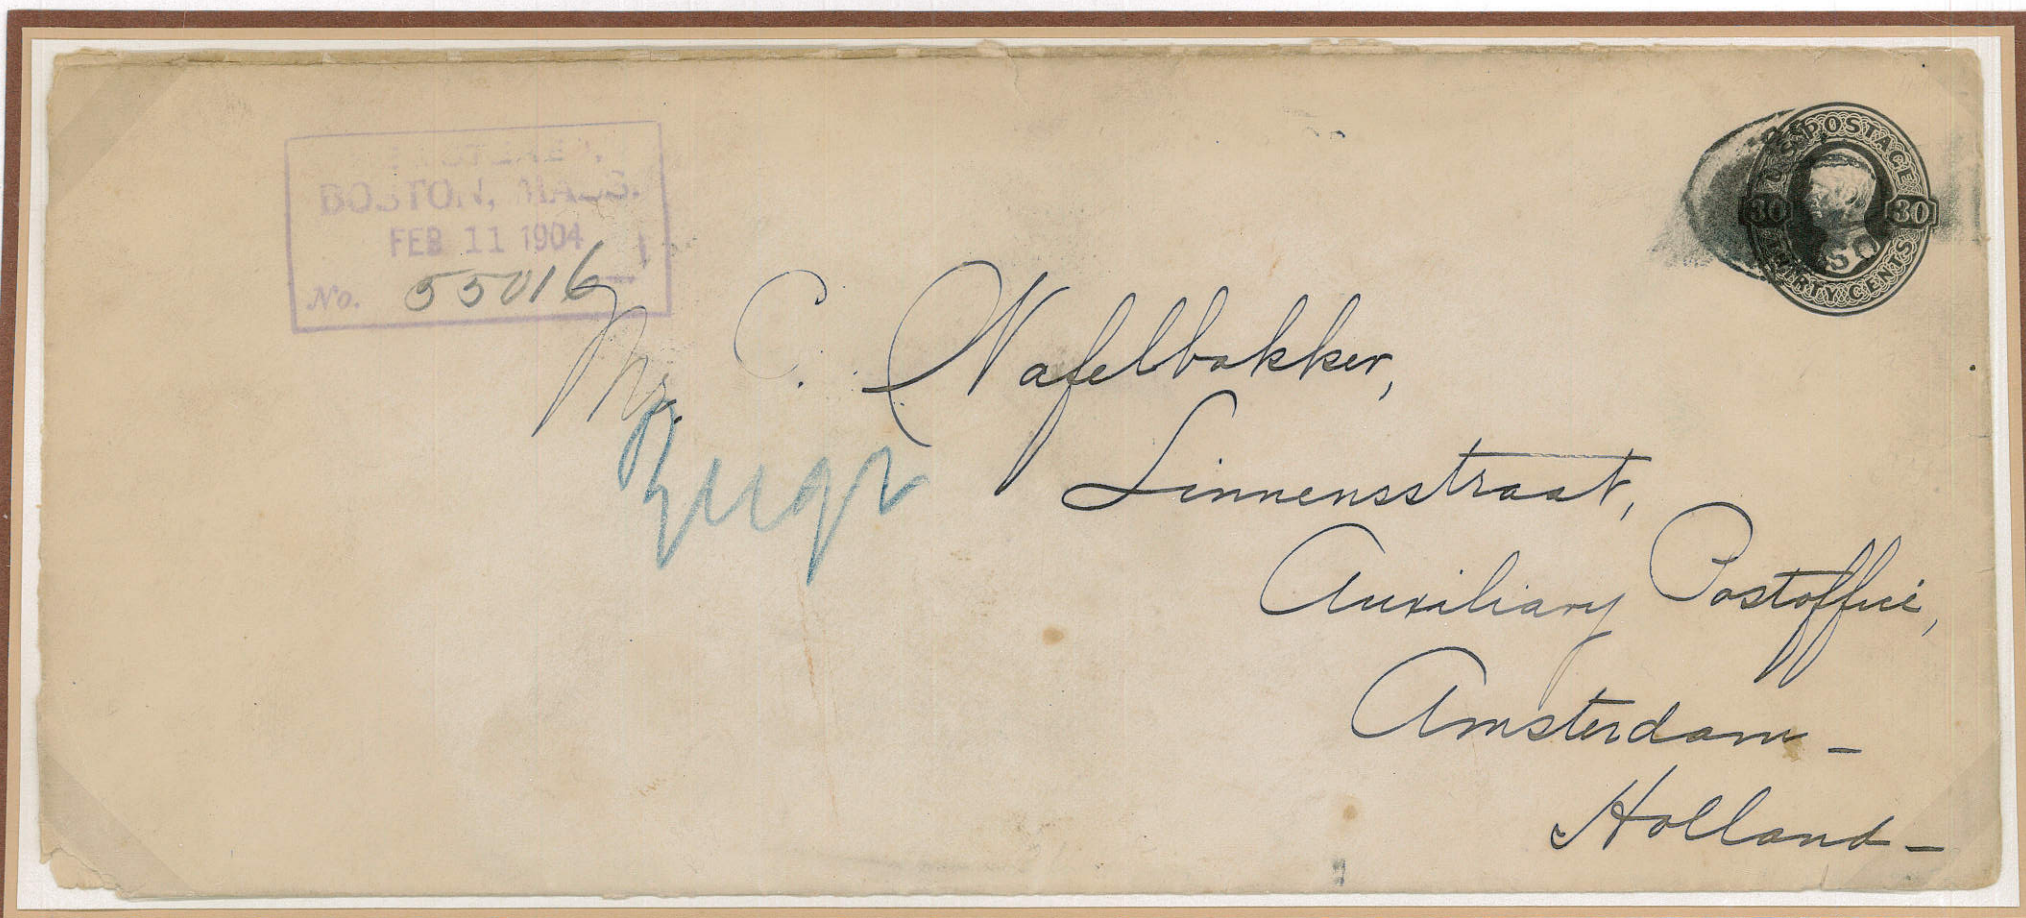 REGISTERED
BOSTON, MASS.
FEB 11 1904
No. 55016
U.S. POSTAGE
30 30
THIRTY CENTS
Mr. C. Nafelbakker,
Linnensstraat,
Auxiliary Postoffice,
Amsterdam –
Holland –